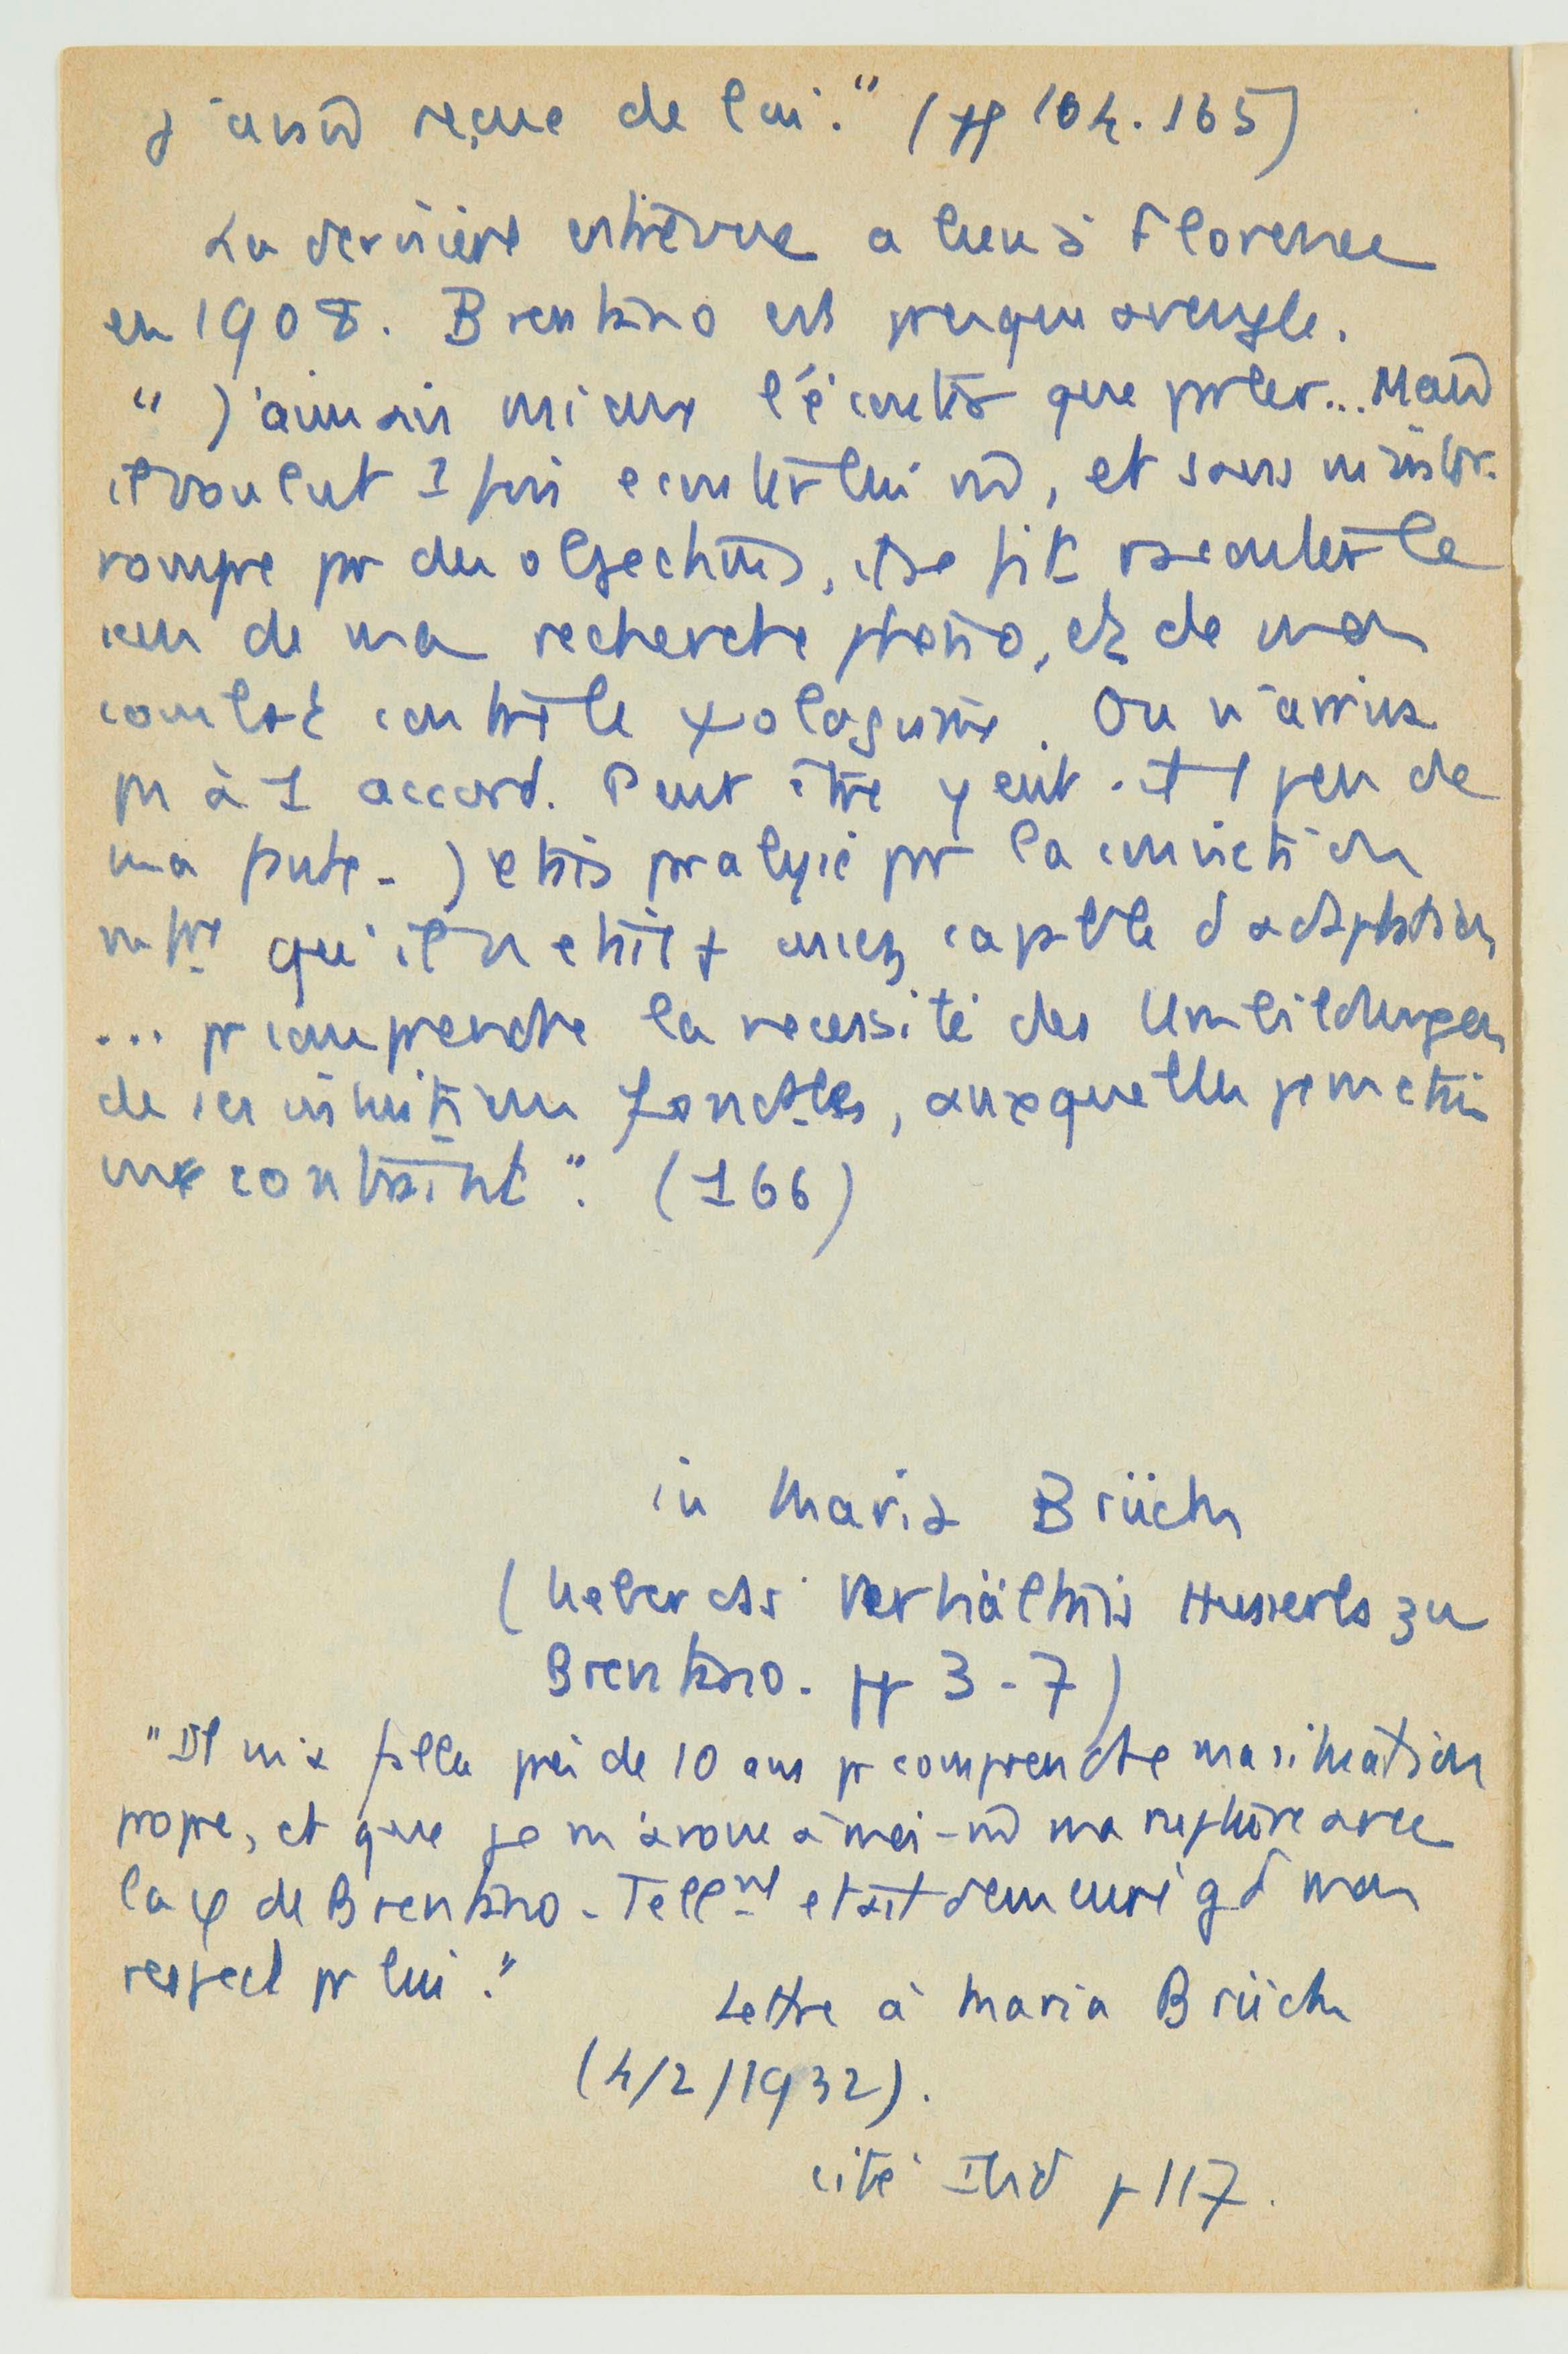 j'avais reçue de lui." (pp 164.165)
La dernière entrevue a lieu à Florence
en 1908. Brentano est presque aveugle.
"J'aimais mieux l'écouter que parler... Mais
il voulut 1 fois écouter lui m̂, et sans m'inter-
rompre par des objections, il se fit raconter le
sens de ma recherche phéno, et de mon
combat contre le ψologisme. On n'arriva
pas à 1 accord. Peut être y eut-il 1 peu de
ma faute. J'étais paralysé par la conviction
qu'il n'était + assez capable d'adaptation
... pr comprendre la nécessité des Umbildungen
de ses intuitions fondtles, auxquelles je m'étais
vu contraint". (166)
in Maria Brück
(Ueber das Verhältnis Husserls zu
Brentano. pp 3-7)
"Il m'a fallu près de 10 ans pr comprendre ma situation
propre, et que je m'avoue à moi-m̂ ma rupture avec
la φ de Brentano. Tellmt était demeuré gd mon
respect pr lui."
Lettre à Maria Brück
(4/2/1932).
cité Ibid p 117.